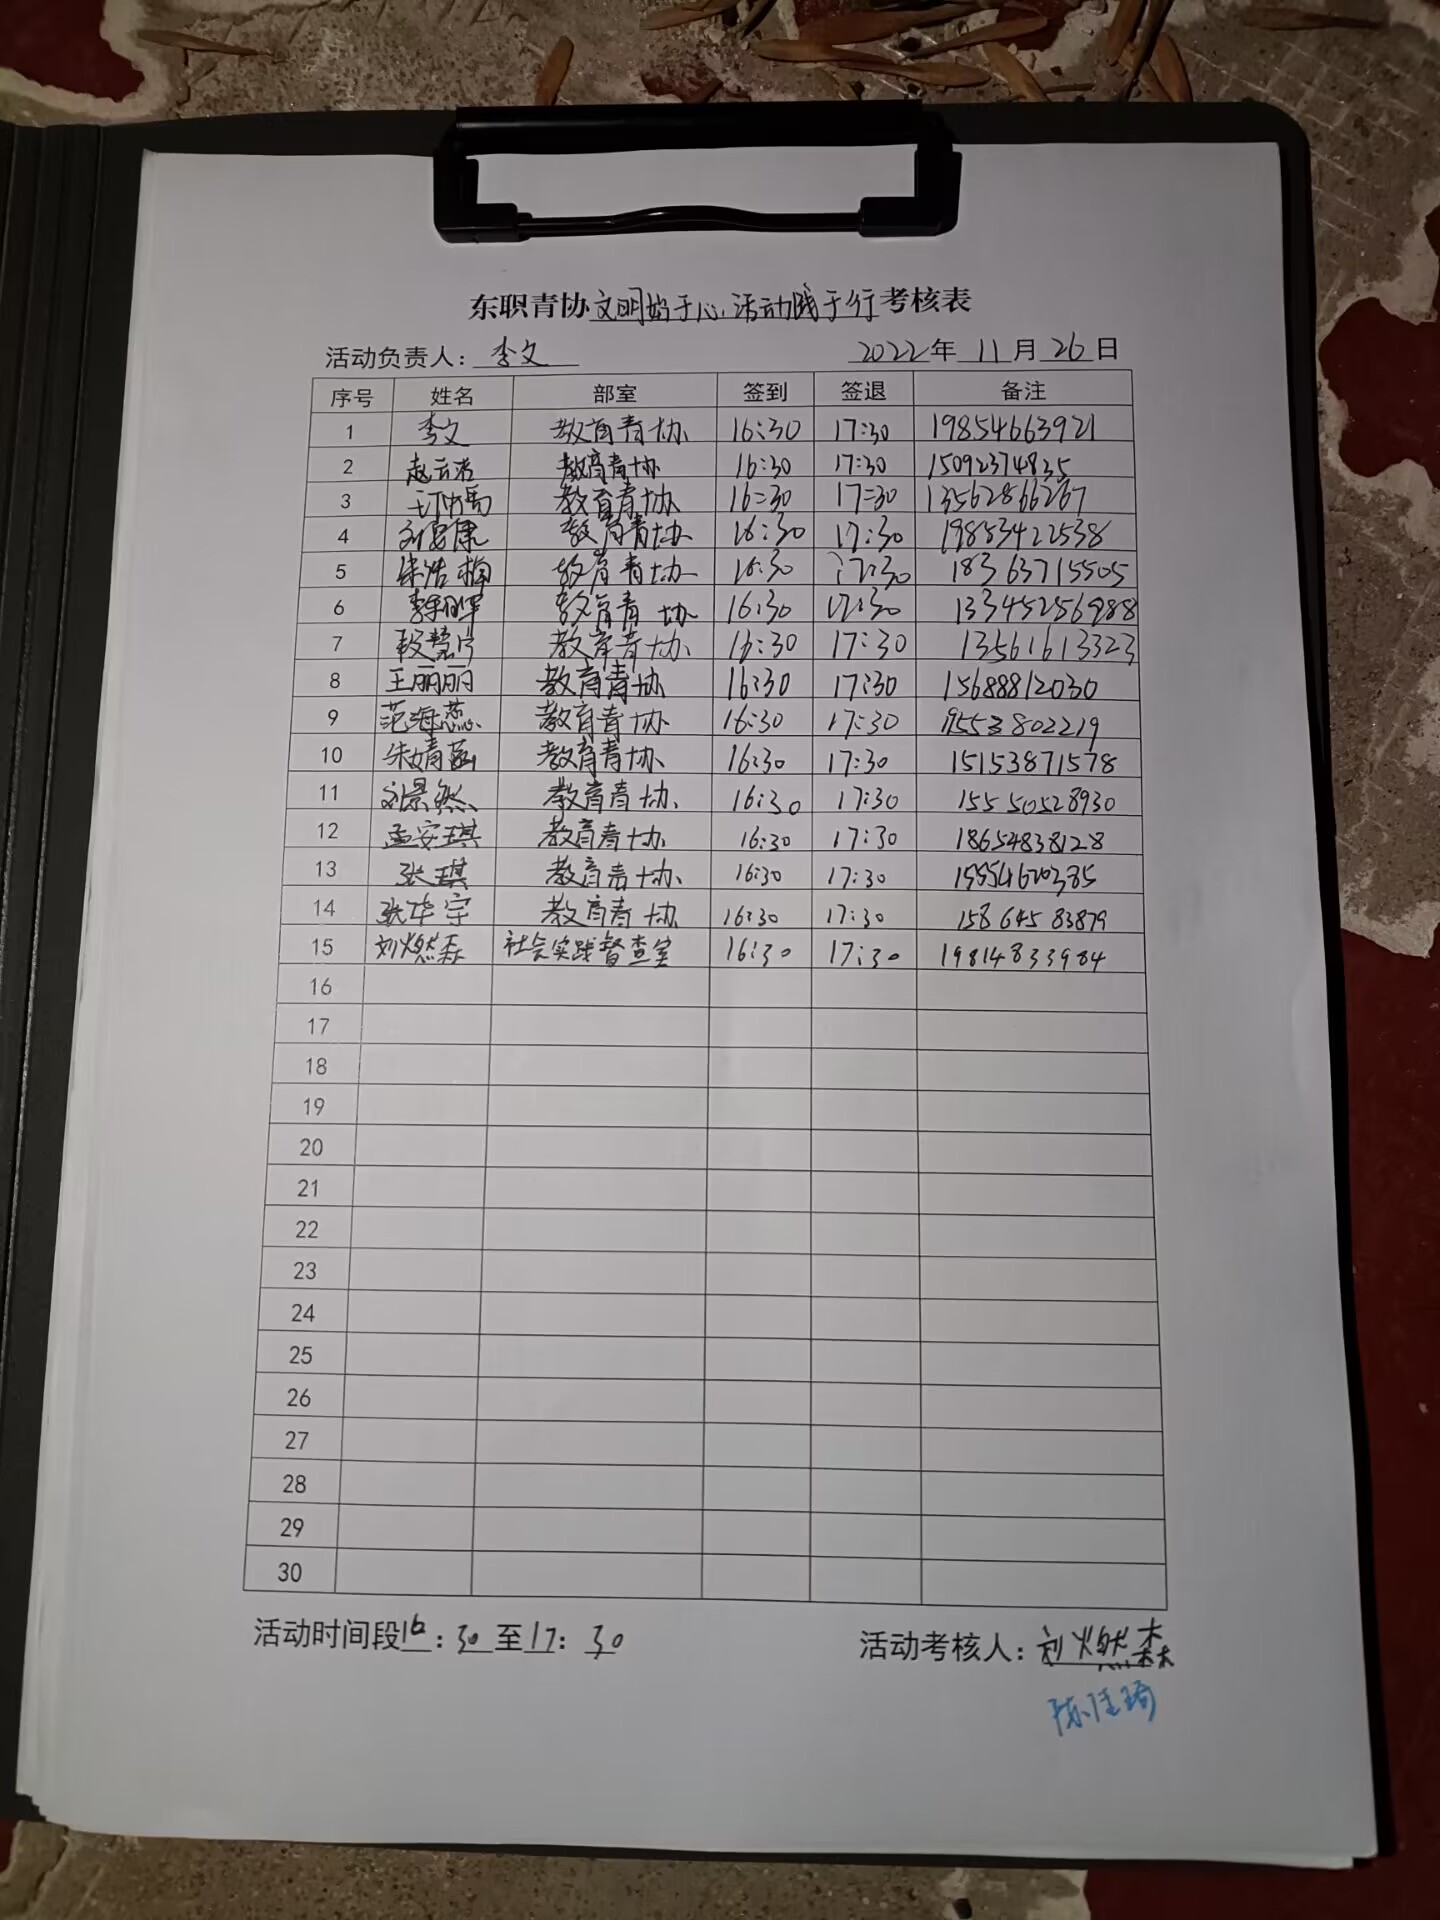 东职青协文明始于心,活动践于行考核表
活动负责人：李文 2022年11月26日
序号 姓名 部室 签到 签退 备注
1 李文 教育青协 16:30 17:30 19854663921
2 赵云浩 教育青协 16:30 17:30 15092374835
3 教育青协 16:30 17:30 13562866267
4 刘安康 教育青协 16:30 17:30 19853422538
5 朱浩楠 教育青协 16:30 17:30 18363715505
6 教育青协 16:30 17:30 13345256988
7 段慧宁 教育青协 16:30 17:30 13561613323
8 王丽丽 教育青协 16:30 17:30 15688812030
9 范海蕊 教育青协 16:30 17:30 19553802219
10 朱婧菡 教育青协 16:30 17:30 15153871578
11 刘景然 教育青协 16:30 17:30 15550528930
12 孟安琪 教育青协 16:30 17:30 18654838128
13 张琪 教育青协 16:30 17:30
14 张华宇 教育青协 16:30 17:30 15864583879
15 刘燃森 社会实践督查室 16:30 17:30 19814833984
16
17
18
19
20
21
22
23
24
25
26
27
28
29
30
活动时间段16:30至17:30 活动考核人：刘燃森
陈佳琦